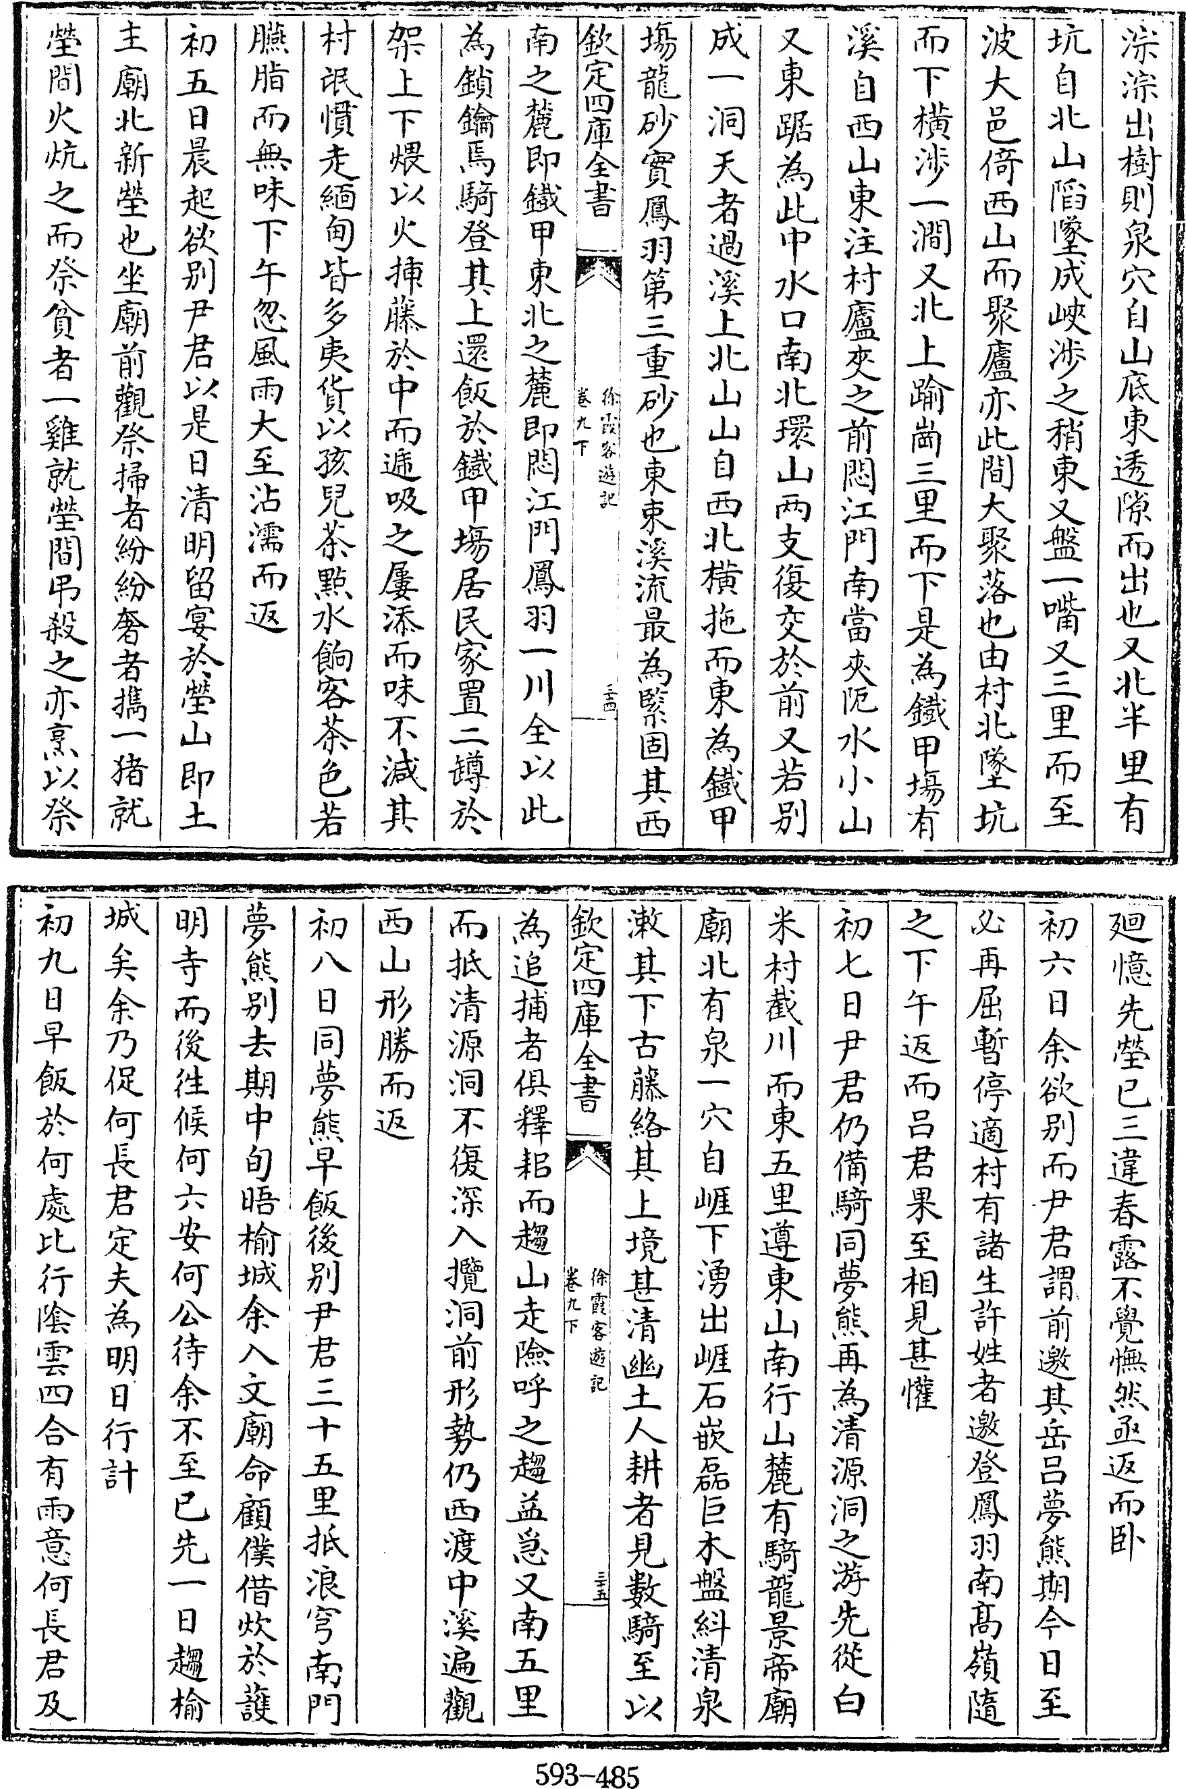 淙淙出樹則泉穴自山底東透隙而出也又北半里有
坑自北山䧟墜成峽渉之稍東又盤一嘴又三里而至
波大邑倚西山而聚廬亦此間大聚落也由村北墜坑
而下橫渉一澗又北上踰崗三里而下是為鐵甲塲有
溪自西山東注村廬夾之前悶江門南當夾阨水小山
又東踞為此中水口南北環山兩支復交於前又若别
成一洞天者過溪上北山山自西北橫拖而東為鐵甲
塲龍砂實鳳羽第三重砂也東東溪流最為緊固其西
欽定四庫全書
徐霞客遊記
卷九下
三十四
南之麓即鐵甲東北之麓即悶江門鳳羽一川全以此
為鎖鑰馬騎登其上還飯於鐵甲塲居民家置二罇於
架上下煨以火揷藤於中而遞吸之屢添而味不減其
村氓慣走緬甸皆多夷貨以孩兒茶點水餉客茶色若
臙脂而無味下午忽風雨大至沾濡而返
初五日晨起欲别尹君以是日清明留宴於塋山即土
主廟北新塋也坐廟前觀祭掃者紛紛奢者攜一猪就
塋間火炕之而祭貧者一雞就塋間弔殺之亦烹以祭
廻憶先塋已三違春露不覺憮然亟返而卧
初六日余欲别而尹君謂前邀其岳吕夢熊期今日至
必再屈暫停適村有諸生許姓者邀登鳳羽南髙嶺隨
之下午返而吕君果至相見甚懽
初七日尹君仍備騎同夢熊再為清源洞之游先從白
米村截川而東五里遵東山南行山麓有騎龍景帝廟
廟北有泉一穴自崕下湧出崕石嵌磊巨木盤糾清泉
漱其下古藤絡其上境甚清幽土人耕者見數騎至以
欽定四庫全書
徐霞客遊記
卷九下
三十五
為追捕者俱釋耜而趨山走險呼之趨益急又南五里
而抵清源洞不復深入攬洞前形勢仍西渡中溪遍觀
西山形勝而返
初八日同夢熊早飯後别尹君三十五里抵浪穹南門
夢熊别去期中旬晤榆城余入文廟命顧僕借炊於護
明寺而後徃候何六安何公待余不至已先一日趨榆
城矣余乃促何長君定夫為明日行計
初九日早飯於何處比行陰雲四合有雨意何長君及
593-485